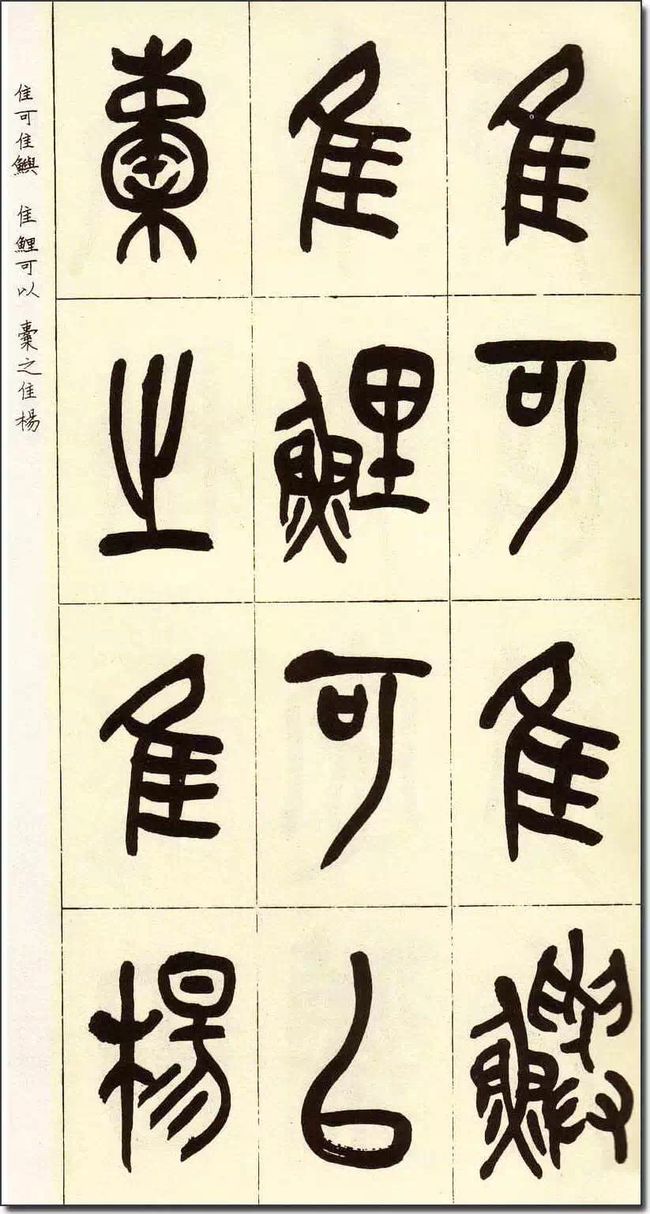 隹可隹鱮
隹鯉可以
橐之隹楊
隹可隹鱮 隹鯉可以 橐之隹楊